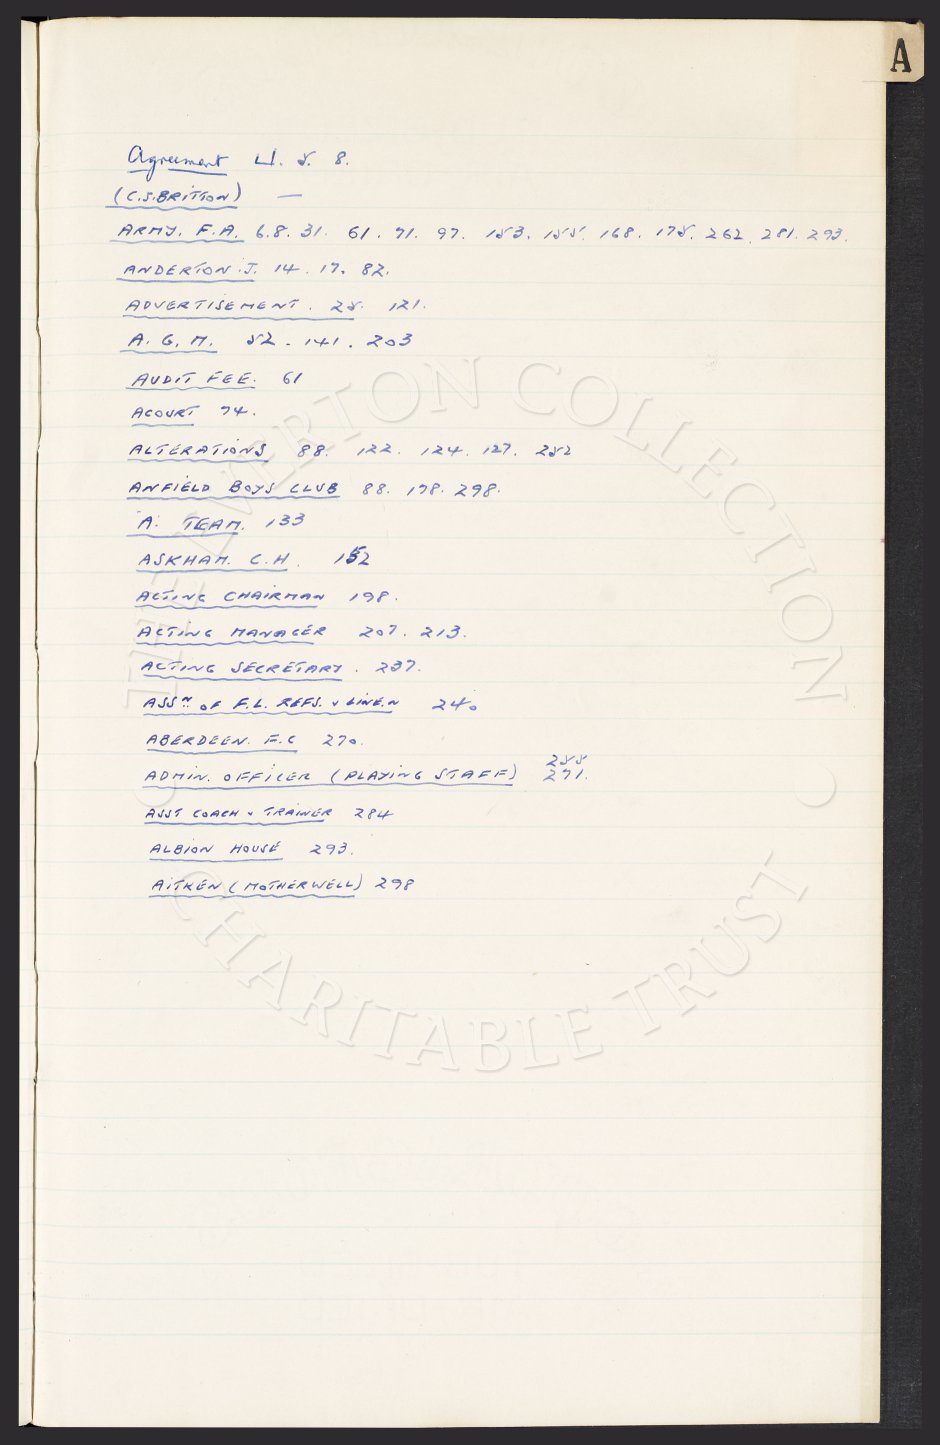 A
Agreement 4. 5. 8.
(C.S.BRITTON) —
ARMY. F.A. 6.8. 31. 61. 71. 97. 153. 155. 168. 175. 262. 281. 293.
ANDERTON. J. 14. 17. 82.
ADVERTISEMENT. 25. 121.
A. G. M. 52. 141. 203
AUDIT FEE. 61
ACOURT 74.
ALTERATIONS 88. 122. 124. 127. 252
ANFIELD BOYS CLUB 88. 178. 298.
'A' TEAM. 133
ASKHAM. C.H. 152
ACTING CHAIRMAN 198.
ACTING MANAGER 207. 213.
ACTING SECRETARY. 237.
ASSN OF F.L. REFS. & LINE.N 240
ABERDEEN. F.C 270.
ADMIN. OFFICER (PLAYING STAFF) 255 271.
ASST COACH & TRAINER 284
ALBION HOUSE 293.
AITKEN (MOTHERWELL) 298
THE EVERTON COLLECTION
CHARITABLE TRUST